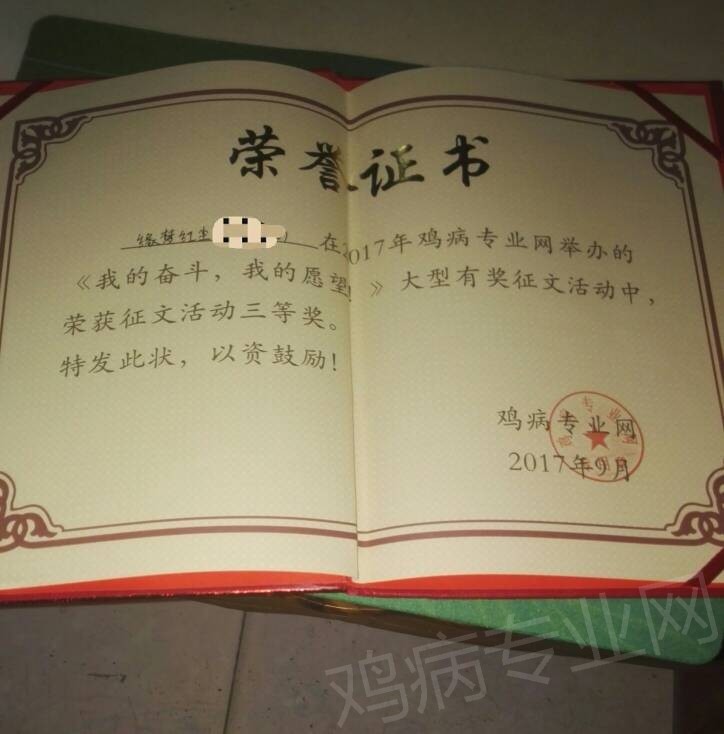 荣誉证书
缘梦红尘 在2017年鸡病专业网举办的
《我的奋斗，我的愿望！》大型有奖征文活动中，
荣获征文活动三等奖。
特发此状，以资鼓励！
鸡病专业网
2017年9月
鸡病专业网
鸡病专业网